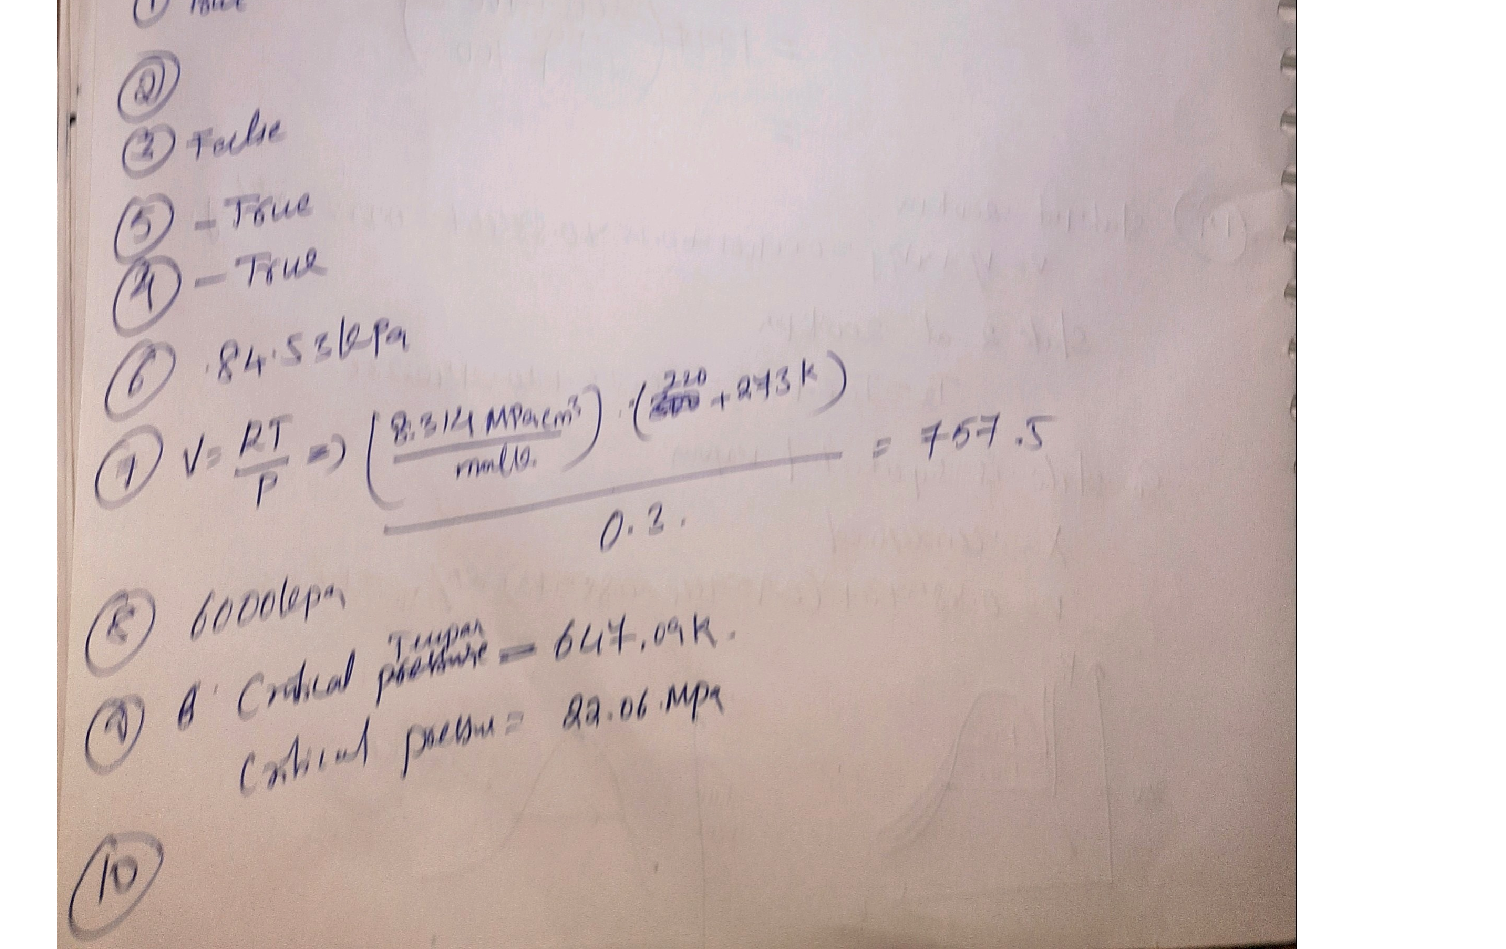 ①
②
③ False
⑤ - True
④ - True
⑥ 84.53 kPa
⑦ V = RT/P => (8.314 MPa cm³ / mol K) · (220 + 273 K) / 0.3. = 757.5
⑧ 6000 kpa
⑨ B Critical Temper = 647.09 K.
Critical pressure = 22.06 Mpa
⑩